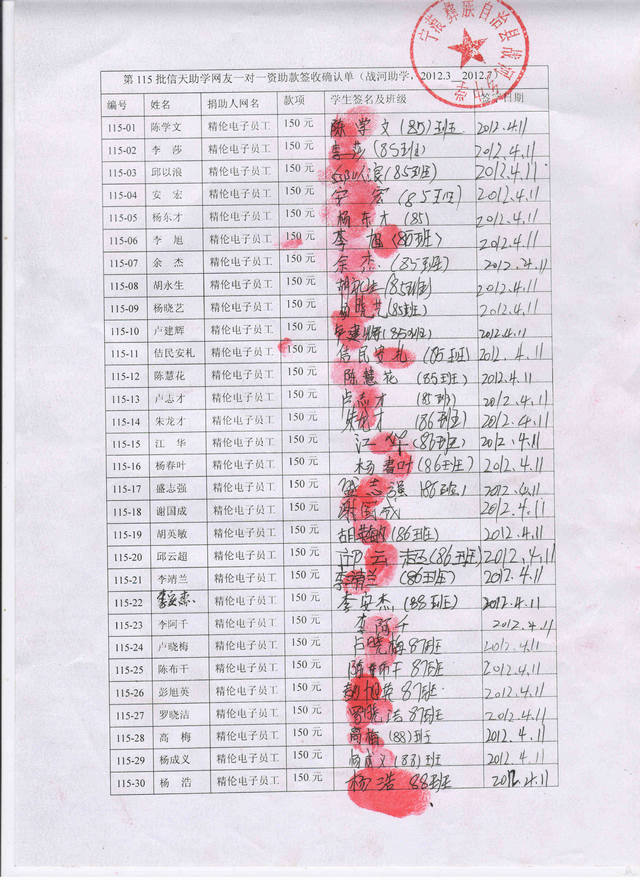 宁蒗彝族自治县战河
第 115 批信天助学网友一对一资助款签收确认单（战河助学，2012.3__2012.7）
编号 姓名 捐助人网名 款项 学生签名及班级 日期
115-01 陈学文 精伦电子员工 150 元 陈学文(85)班 2012.4.11
115-02 李 莎 精伦电子员工 150 元 李莎(85班) 2012.4.11
115-03 邱以浪 精伦电子员工 150 元 邱以浪(85班) 2012.4.11
115-04 安 宏 精伦电子员工 150 元 宏(85班) 2012.4.11
115-05 杨东才 精伦电子员工 150 元 杨东才(85) 2012.4.11
115-06 李 旭 精伦电子员工 150 元 李旭(86班) 2012.4.11
115-07 余 杰 精伦电子员工 150 元 余杰(85班) 2012.4.11
115-08 胡永生 精伦电子员工 150 元 胡永生(85班) 2012.4.11
115-09 杨晓艺 精伦电子员工 150 元 杨晓艺(85班) 2012.4.11
115-10 卢建辉 精伦电子员工 150 元 卢建辉(85班) 2012.4.11
115-11 佶民安札 精伦电子员工 150 元 佶民安札(85班) 2012.4.11
115-12 陈慧花 精伦电子员工 150 元 陈慧花(85班) 2012.4.11
115-13 卢志才 精伦电子员工 150 元 卢志才(85班) 2012.4.11
115-14 朱龙才 精伦电子员工 150 元 朱龙才(86班) 2012.4.11
115-15 江 华 精伦电子员工 150 元 江华(86班) 2012.4.11
115-16 杨春叶 精伦电子员工 150 元 杨春叶(86班) 2012.4.11
115-17 盛志强 精伦电子员工 150 元 盛志强(86班) 2012.4.11
115-18 谢国成 精伦电子员工 150 元 谢国成 2012.4.11
115-19 胡英敏 精伦电子员工 150 元 胡英敏(86班) 2012.4.11
115-20 邱云超 精伦电子员工 150 元 邱云超(86班) 2012.4.11
115-21 李靖兰 精伦电子员工 150 元 李靖兰(86班) 2012.4.11
115-22 李安杰 精伦电子员工 150 元 李安杰(88班) 2012.4.11
115-23 李阿千 精伦电子员工 150 元 李阿千 2012.4.11
115-24 卢晓梅 精伦电子员工 150 元 卢晓梅87班 2012.4.11
115-25 陈布干 精伦电子员工 150 元 陈布干87班 2012.4.11
115-26 彭旭英 精伦电子员工 150 元 彭旭英87班 2012.4.11
115-27 罗晓洁 精伦电子员工 150 元 罗晓洁87班 2012.4.11
115-28 高 梅 精伦电子员工 150 元 高梅(88)班 2012.4.11
115-29 杨成义 精伦电子员工 150 元 杨成义(88)班 2012.4.11
115-30 杨 浩 精伦电子员工 150 元 杨浩88班 2012.4.11